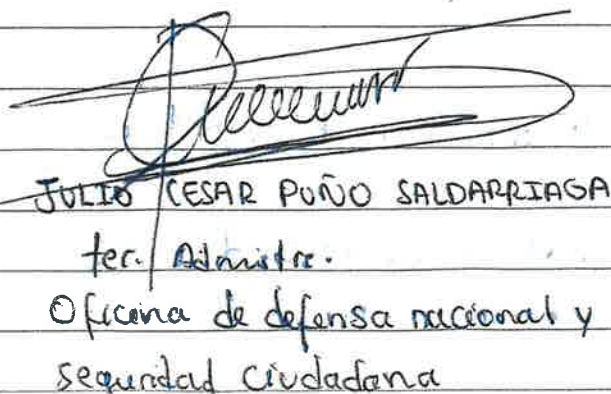 JULIO CESAR PUÑO SALDARRIAGA
tec. Administr.
Oficina de defensa nacional y
seguridad ciudadana